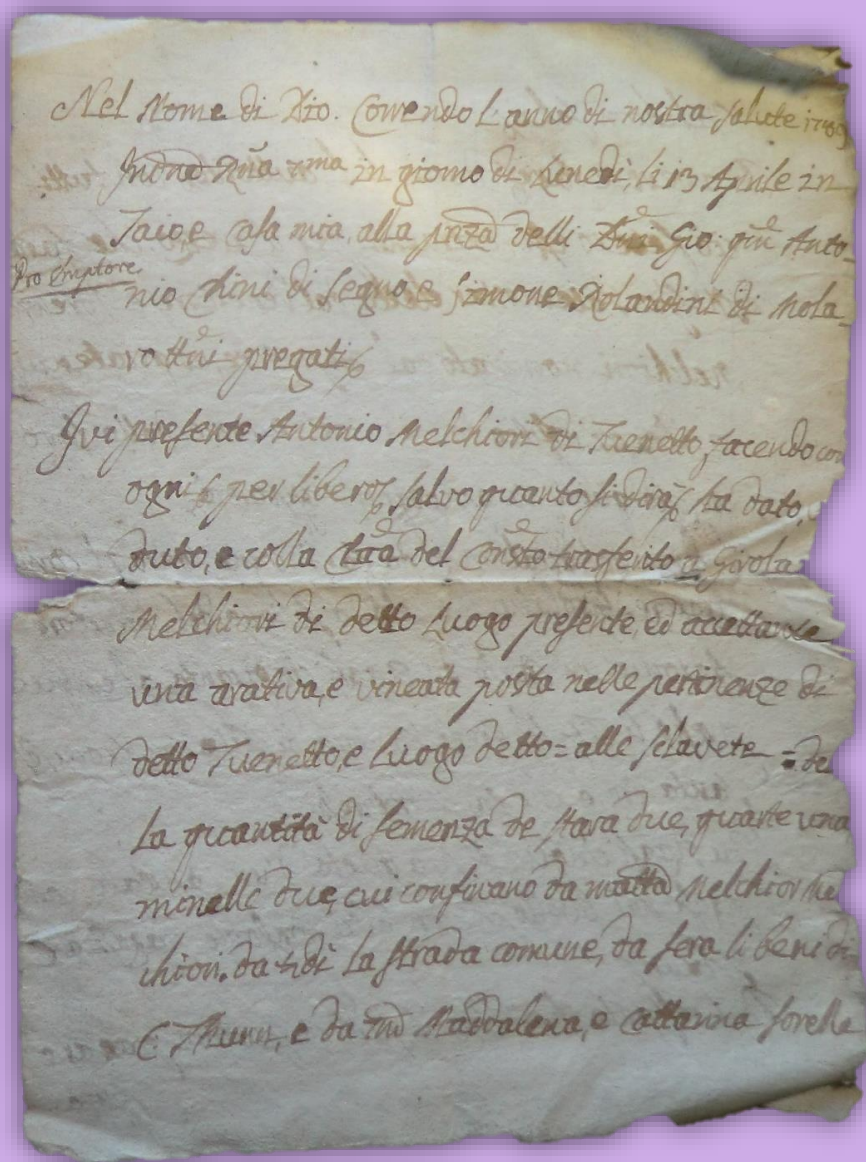 Nel Nome di Dio. Correndo L'anno di nostra salute
Indne Rña 7ma in giorno di Lunedi, li 13 Aprile in
Taio, e casa mia, alla pñza delli Dni Gio: qm Anto-
Pro Scriptore
nio Chini di Segno, e Simone Rolandini di Mola-
ro ttni pregati
Ivi presente Antonio Melchiori di Tuenetto, facendo con
ogni per libero salvo quanto si dirà ha dato,
duto, e colla del trasferito a Girola
Melchiori di detto Luogo presente, ed accettante
una arativa, e vineata posta nelle pertinenze di
detto Tuenetto, e Luogo detto = alle sclavete = de
La quantità di semenza de stara due, quarte una
minelle due, cui confinano da matta Melchior Mel
chiori, da ndi La strada comune, da sera li beni di
C Thunn, e da Maddalena, e Cattarina sorelle